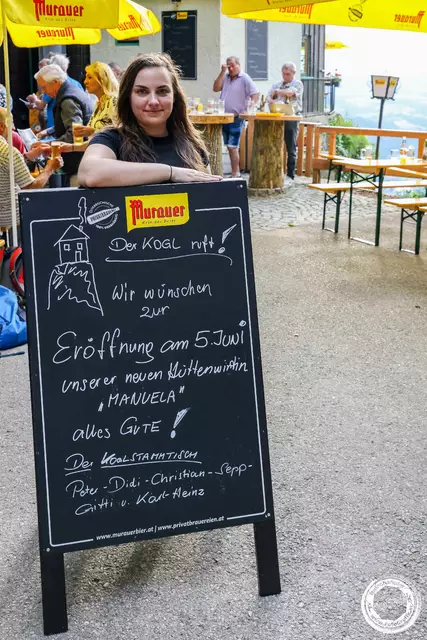 Murauer
Murauer
Murauer
Murauer
Murauer
Murauer
DER KOGL ruft!
Wir wünschen
zur
Eröffnung am 5. JUNI
unserer neuen Hüttenwirtin
„MANUELA"
alles GUTE!
Der KOGLSTAMMTISCH
Peter-Didi-Christian-Sepp-
Gitti u. Karl-Heinz
www.murauerbier.at | www.privatbrauereien.at